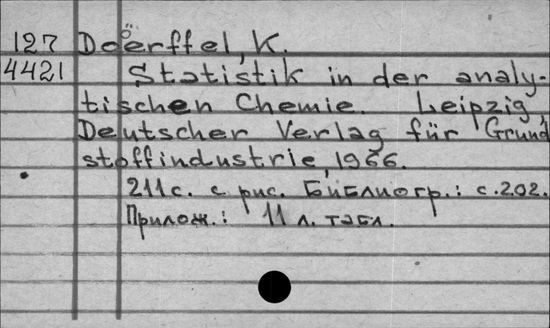 127 Doërffel, K.
4421 Statistik in der analy-
tischen Chemie. Leipzig,
Deutscher Verlag für Grund
stoffindustrie, 1966.
211 с. с рис. Библиогр.: с. 202.
Прилож.: 11 л. табл.